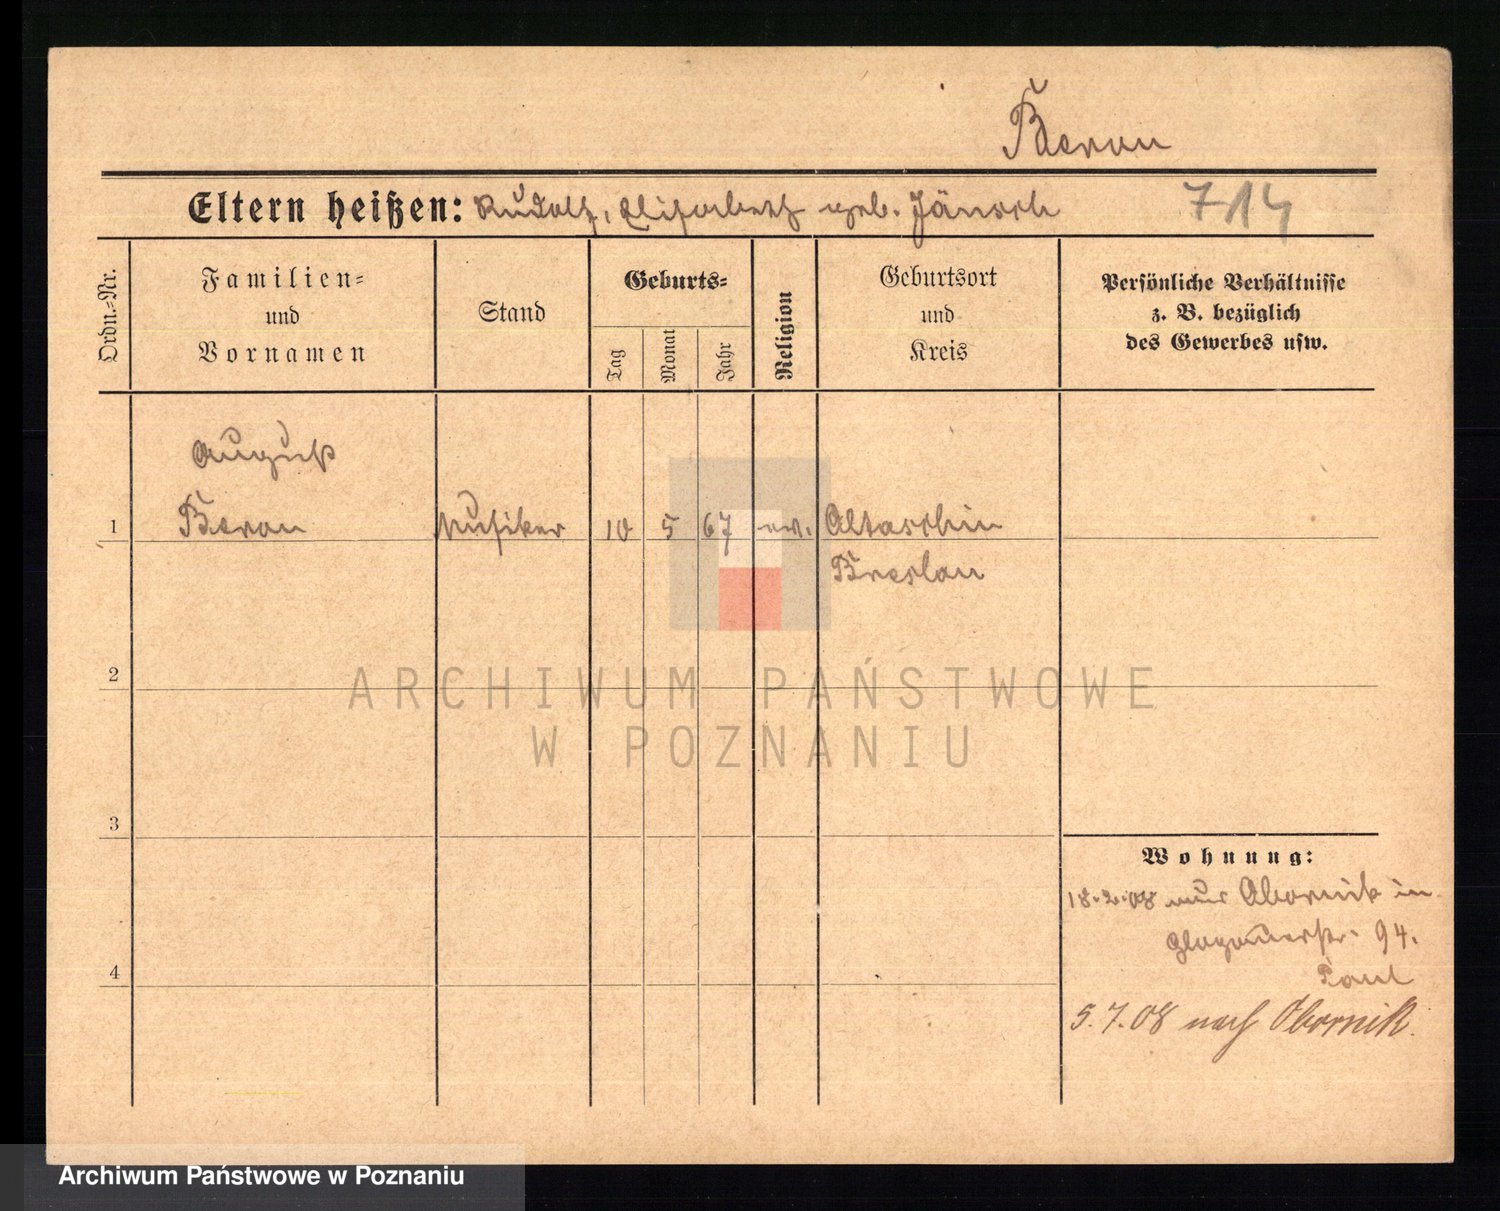 Beron
Eltern heißen: Rudolf, Elisabeth geb. Jänsch 714
Ordn.-Nr.
Familien-
und
Vornamen
Stand
Geburts-
Tag
Monat
Jahr
Religion
Geburtsort
und
Kreis
Persönliche Verhältnisse
z. B. bezüglich
des Gewerbes usw.
August
1 Beron Musiker 10 5 67 ev. Altaschin
Breslau
2
ARCHIWUM PAŃSTWOWE
W POZNANIU
3
Wohnung:
18.2.08 aus Obornik in
Glogauerstr. 94.
4
Paul
5.7.08 nach Obornik.
Archiwum Państwowe w Poznaniu